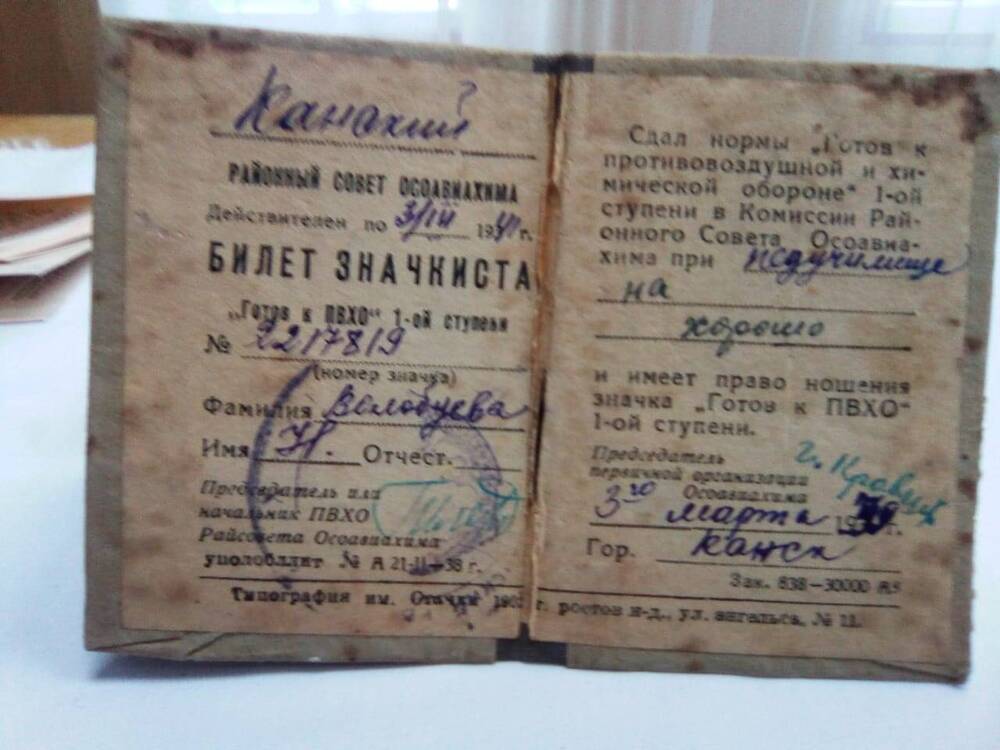 Канский
РАЙОННЫЙ СОВЕТ ОСОАВИАХИМА
Действителен по 3/III 1941 г.
БИЛЕТ ЗНАЧКИСТА
„Готов к ПВХО“ 1-ой ступени
№ 2217819
(номер значка)
Фамилия Белобуева
Имя Н. Отчест.
Председатель или
начальник ПВХО
Райсовета Осоавиахима
уполобллит № А 21-11-38 г.
Типография им. Стачки 190 г. ростов н-д., ул. энгельса, № 11.
Сдал нормы „Готов к
противовоздушной и хи-
мической обороне“ 1-ой
ступени в Комиссии Рай-
онного Совета Осоавиа-
хима при педучилище
на
хорошо
и имеет право ношения
значка „Готов к ПВХО“
1-ой ступени.
Председатель
первичной организации
Осоавиахима
3го марта 19 г.
Гор. Канск
Зак. 838—30000